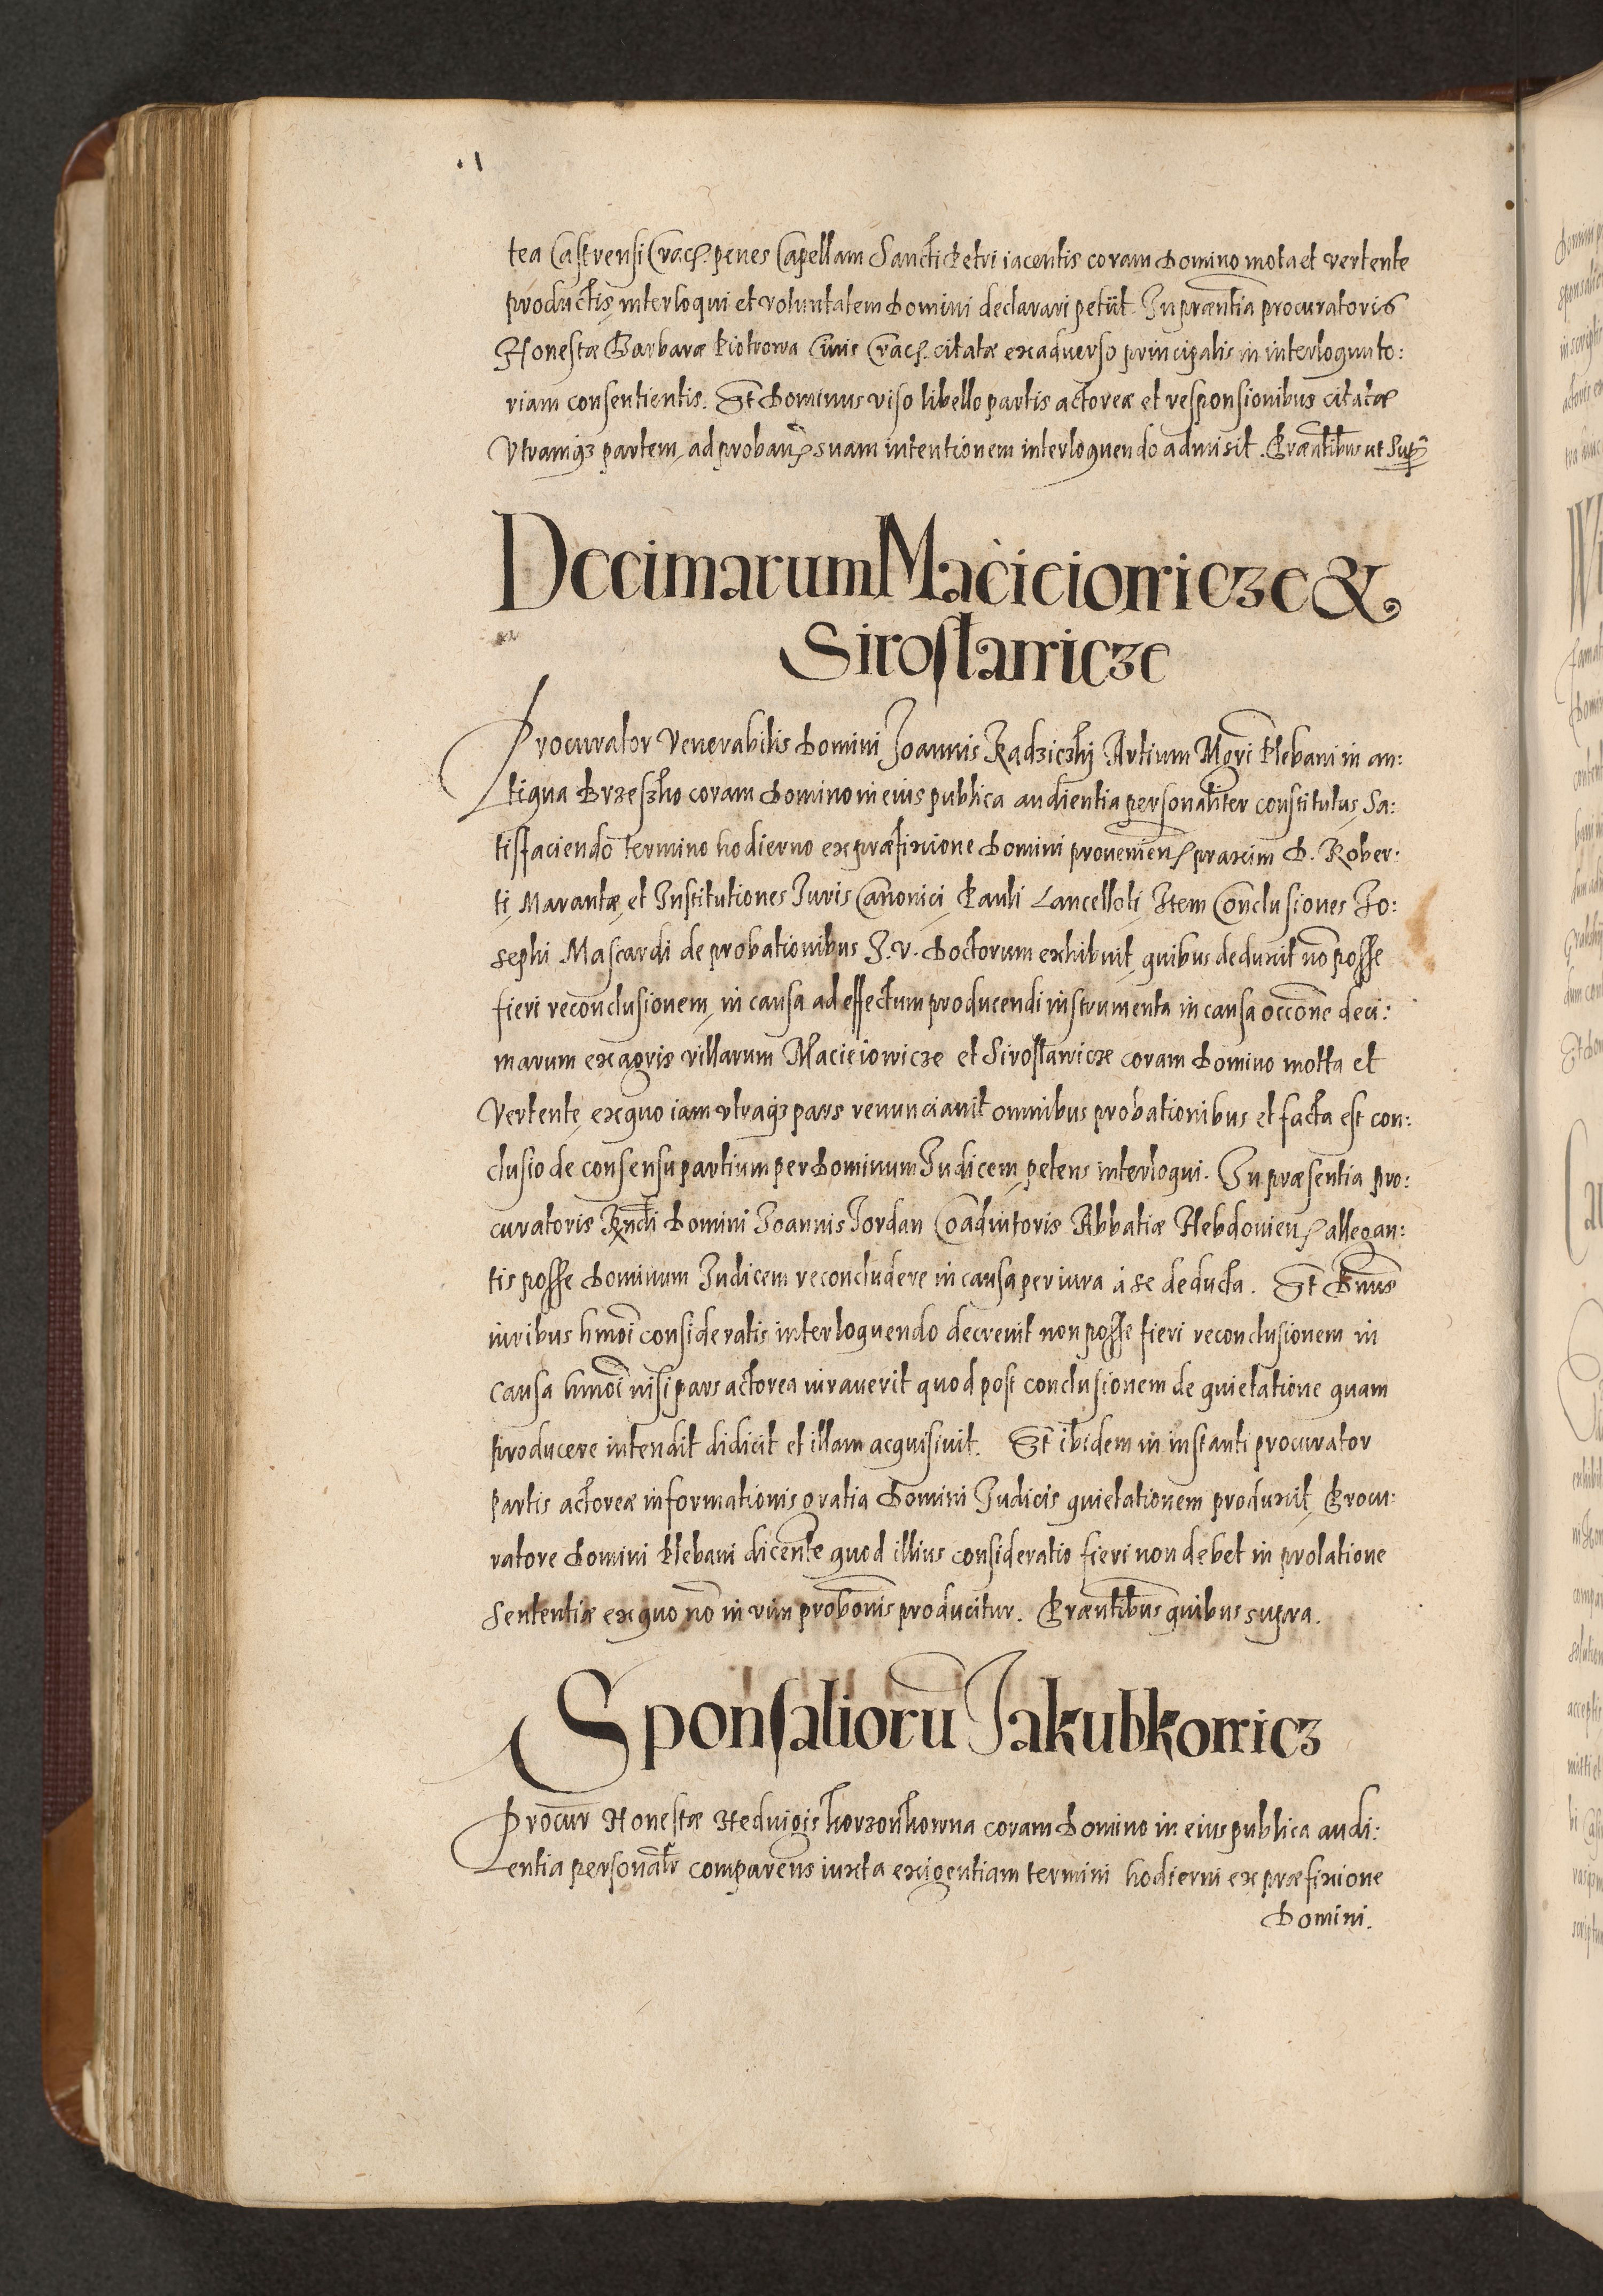 tea Castrensi Crac. penes Capellam Sancti Petri iacentis coram Domino mota et vertente
productis, interloqui et voluntatem Domini declarari petiit. In præntia procuratoris
Honestæ Barbaræ Piotrowa Civis Crac. citatæ ex adverso principalis in interloquuto:
riam consentientis. Et Dominus viso libello partis actoreæ et responsionibus citatæ
Vtramq3 partem, ad proban. suam intentionem interloquendo admisit. Præntibus ut Sup
Decimarum Macieiowicze &
Sirosławicze
Procurator Venerabilis Domini Joannis Radziczkij Artium Mgri Plebani in an:
tiqua Brzeszko coram Domino in eius publica audientia personaliter constitutus, Sa:
tisfaciendo termino hodierno ex præfixione Domini provenien. praxim D. Rober:
ti, Marantæ, et Institutiones Iuris Canonici, Pauli Lancelloti, Item Conclusiones Io:
sephi Mascardi de probationibus I. V. Doctorum exhibuit, quibus deduxit no posse
fieri reconclusionem, in causa ad effectum producendi instrumenta in causa occone deci:
marum ex agris villarum Macieiowicze et Sirosławicze coram Domino motta et
Vertente, ex quo iam vtraq3 pars renunciavit omnibus probationibus et facta est con:
clusio de consensu partium per Dominum Iudicem, petens interloqui. In præsentia pro:
curatoris Rndi Domini Joannis Jordan Coadiutoris Abbatiæ Hebdovien. allegan:
tis posse Dominum Iudicem reconcludere in causa per iura à se deducta. Et Dnus
iuribus hmoi consideratis interloquendo decrevit non posse fieri reconclusionem in
causa hmoi nisi pars actorea iuraverit quod post conclusionem de quietatione quam
producere intendit didicit et illam acquisivit. Et ibidem in instanti procurator
partis actoreæ informationis gratia Domini Iudicis quietationem produxit, Procu:
ratore Domini Plebani dicente quod illius consideratio fieri non debet in prolatione
Sententiæ ex quo no in vim probonis producitur. Præntibus quibus supra.
Sponsalioru Jakubkowicz
Procur Honestæ Hedvigis Korzonkowna coram Domino in eius publica audi:
entia personalr comparens iuxta exigentiam termini hodierni ex præfixione
Domini.